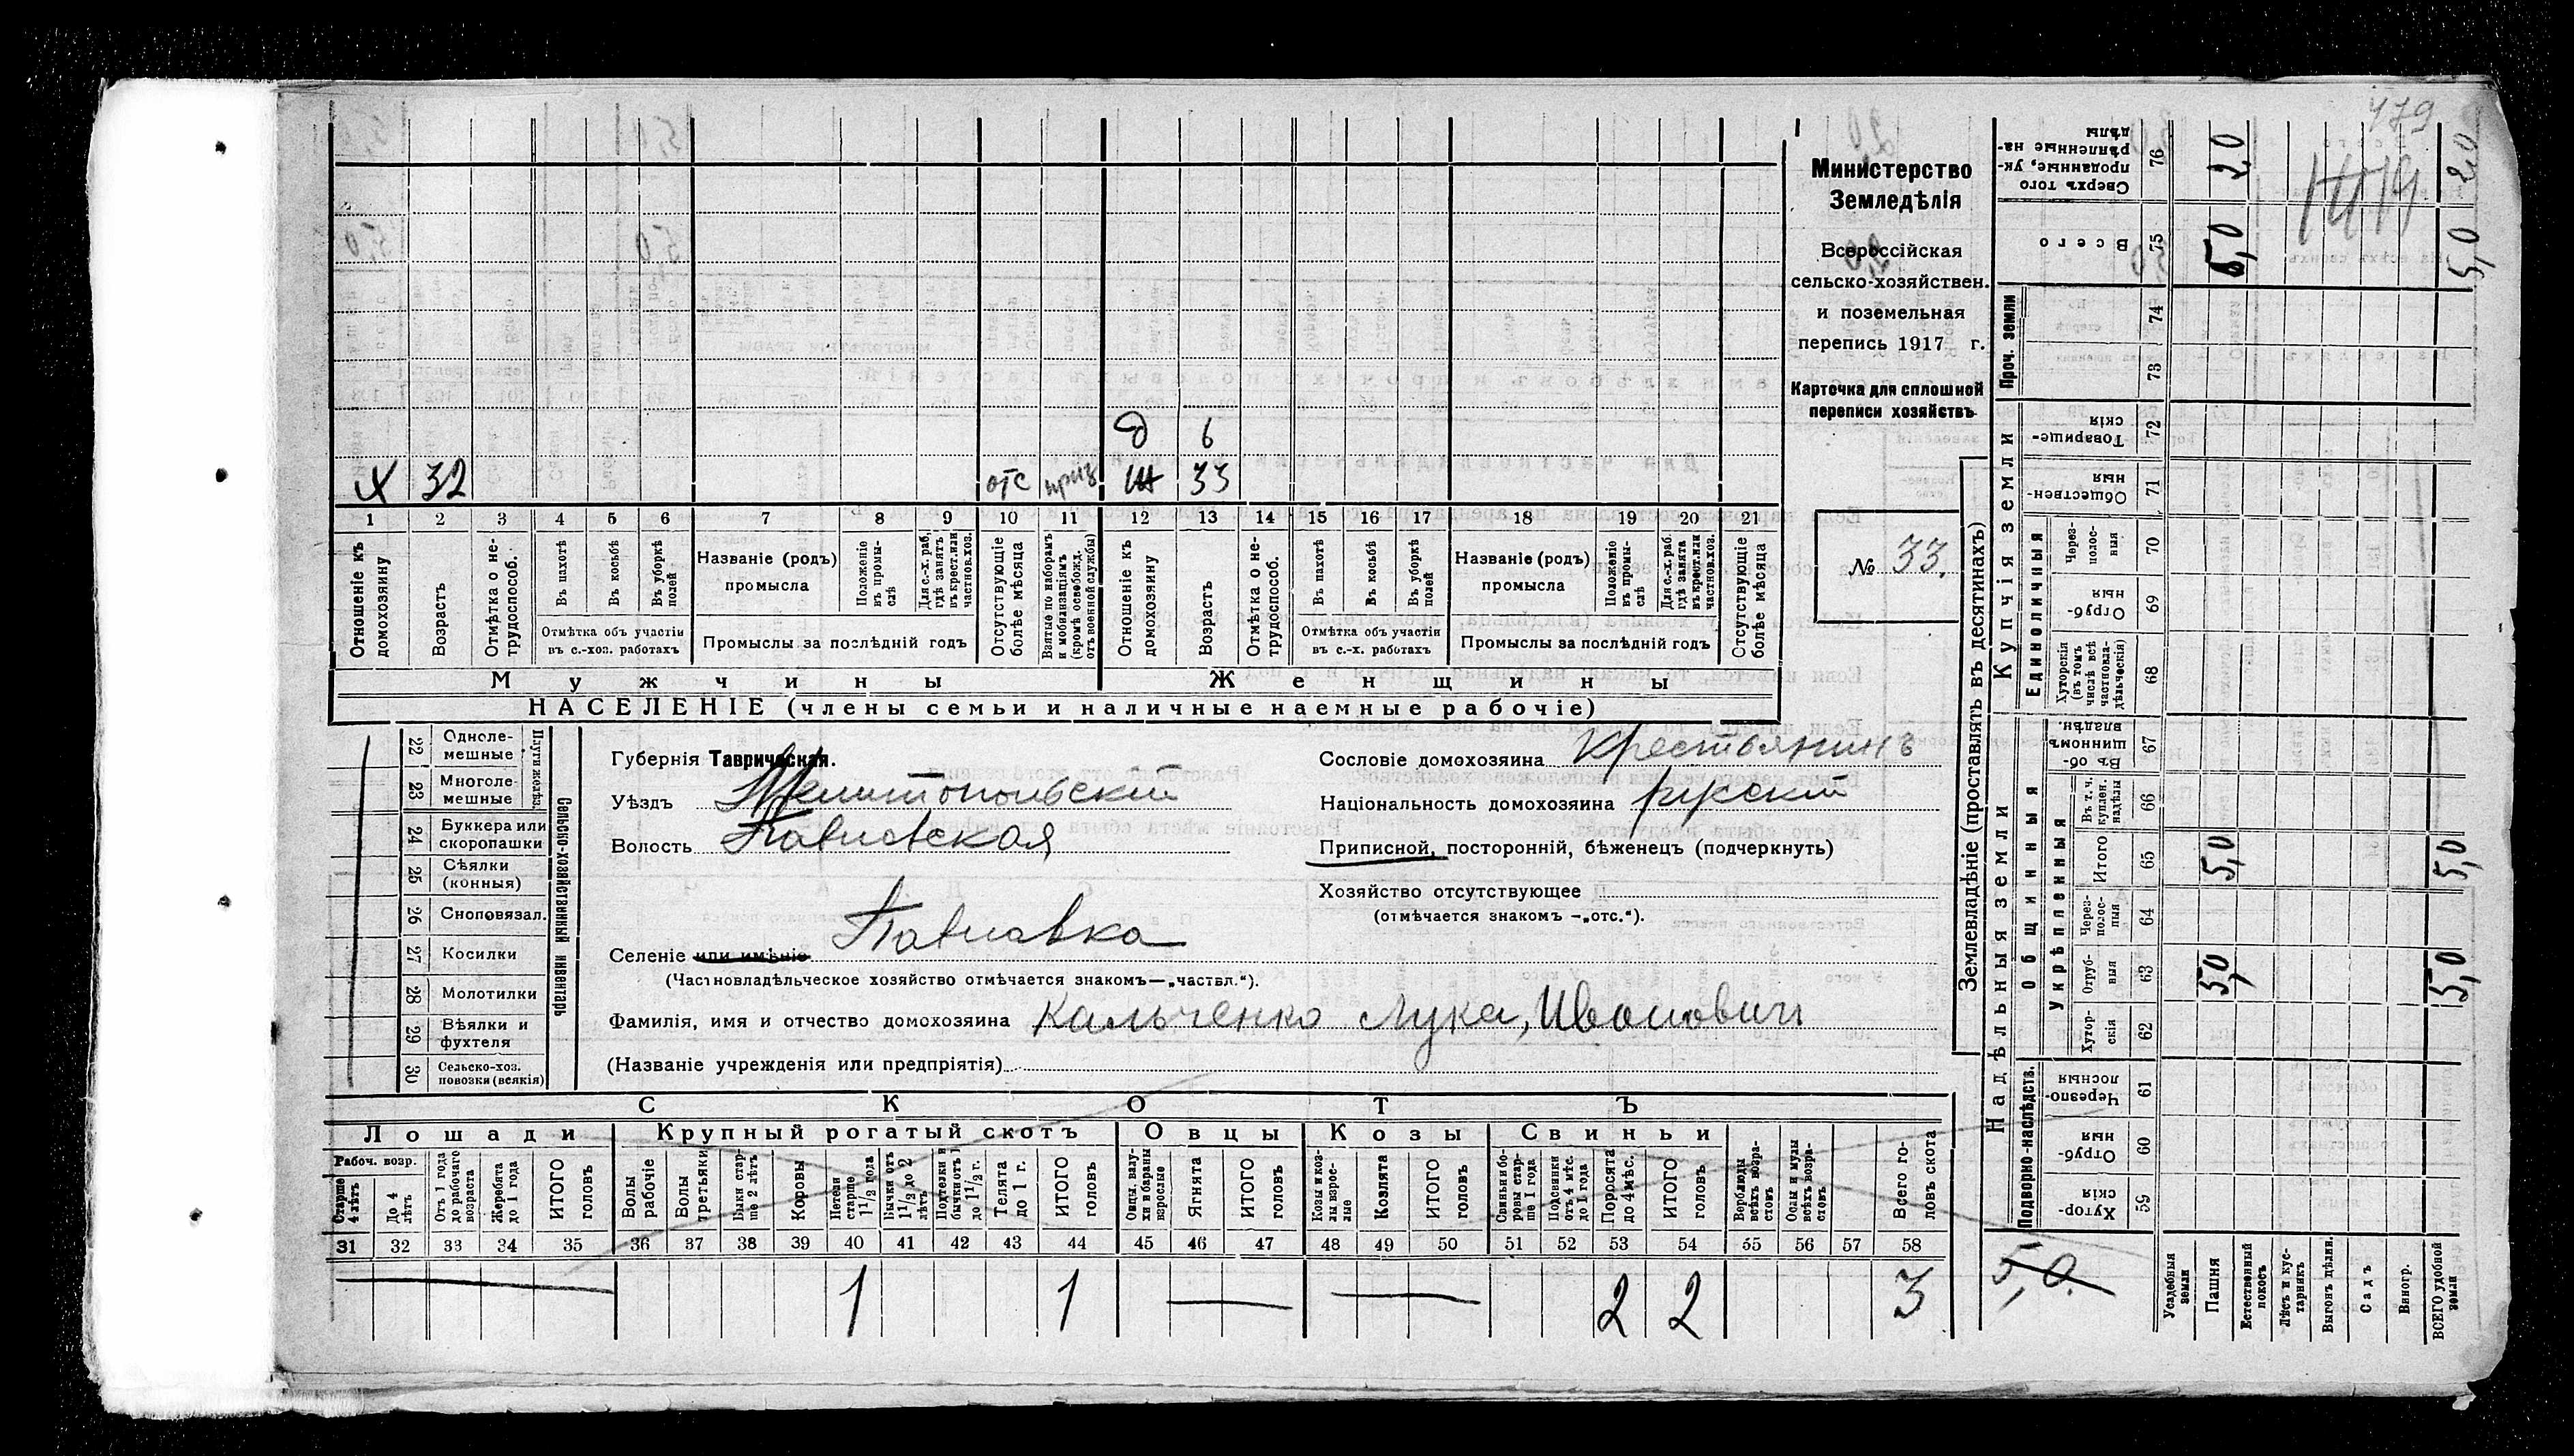 479
1414
Министерство
Земледѣлія
Всероссійская
сельско-хозяйствен.
и поземельная
перепись 1917 г.
Карточка для сплошной
переписи хозяйствъ
№ 33.
д 6
х 32 отс приз ж 33
1 2 3 4 5 6 7 8 9 10 11 12 13 14 15 16 17 18 19 20 21
Отношеніе къ домохозяину
Возрастъ
Отмѣтка о не-трудоспособ.
Въ пахотѣ
Въ косьбѣ
Въ уборкѣ полей
Отмѣтка объ участіи въ с.-хоз. работахъ
Названіе (родъ) промысла
Положеніе въ промы-слѣ
Для с.-х. раб. гдѣ занятъ въ крест. или частнов. хоз.
Промыслы за послѣдній годъ
Отсутствующіе болѣе мѣсяца
Взятые по наборамъ и мобилизаціямъ (кромѣ освобожд. отъ военной службы)
Отношеніе къ домохозяину
Возрастъ
Отмѣтка о не-трудоспособ.
Въ пахотѣ
Въ косьбѣ
Въ уборкѣ полей
Отмѣтка объ участіи въ с.-х. работахъ
Названіе (родъ) промысла
Положеніе въ промы-слѣ
Для с.-х. раб. гдѣ занята въ крест. или частнов. хоз.
Промыслы за послѣдній годъ
Отсутствующіе болѣе мѣсяца
Мужчины Женщины
НАСЕЛЕНІЕ (члены семьи и наличные наемные рабочіе)
Сельско-хозяйственный инвентарь
22 Одноле-мешные
23 Многоле-мешные
24 Буккера или скоропашки
25 Сѣялки (конныя)
26 Сноповязал.
27 Косилки
28 Молотилки
29 Вѣялки и фухтеля
30 Сельско-хоз. повозки (всякія)
Губернія Таврическая.
Уѣздъ Мелитопольскій
Волость Павловская
Селеніе или имѣніе Павловка
(Частновладѣльческое хозяйство отмѣчается знакомъ—„частвл.“).
Фамилія, имя и отчество домохозяина Кальченко Лука, Иванович
(Названіе учрежденія или предпріятія)
Сословіе домохозяина Крестьянинъ
Національность домохозяина русскій
Приписной, посторонній, бѣженец (подчеркнуть)
Хозяйство отсутствующее
(отмѣчается знакомъ —„отс.“).
СКОТЪ
Лошади Крупный рогатый скотъ Овцы Козы Свиньи
Рабоч. возр.
Старше 4 лѣтъ
До 4 лѣтъ
Отъ 1 года до рабочаго возраста
Жеребята до 1 года
ИТОГО головъ
Волы рабочіе
Волы третьяки
Быки стар-ше 2 лѣтъ
Коровы
Нетели старше 1 1/2 года
Бычки отъ 1 1/2 до 2 лѣтъ
Телята до 1 г.
ИТОГО головъ
Ягнята
ИТОГО головъ
Козы и коз-лы взрос-лые
Козлята
ИТОГО головъ
Свиньи бо-ровы стар-ше 1 года
Подсвинки отъ 4 мѣс. до 1 года
Поросята до 4 мѣс.
ИТОГО головъ
Верблюды всѣхъ возра-стовъ
Ослы и мулы всѣхъ возра-стовъ
Всего го-ловъ скота
31 32 33 34 35 36 37 38 39 40 41 42 43 44 45 46 47 48 49 50 51 52 53 54 55 56 57 58
1 1 2 2 3
Землевладѣніе (проставлять въ десятинахъ)
Надѣльныя земли
Купчія земли
Проч. земли
Подворно-наслѣдств.
Общинныя
Укрѣпленныя
Единоличныя
Хутор-скія 59
Отруб-ныя 60
Черезпо-лосныя 61
Хутор-скія 62
Отруб-ныя 63
Через-полос-ныя 64
Итого 65
Въ т. ч. куплен. надѣлы 66
Въ об-щинномъ владѣн. 67
Хуторскія (въ томъ числѣ всѣ частновла-дѣльческія) 68
Отруб-ныя 69
Через-полос-ныя 70
Обществен-ныя 71
Товарище-скія 72
73
74
Всего 75
Сверхъ того проданные, ук-рѣпленные на-дѣлы 76
Усадебныя земли
Пашня 5,0 5,0 5,0 2,0
Естественный покосъ
Лѣсъ и кус-тарникъ
Выгонъ цѣлин.
Садъ
Виногр.
ВСЕГО удобной земли 5,0 5,0 5,0 2,0
5,0